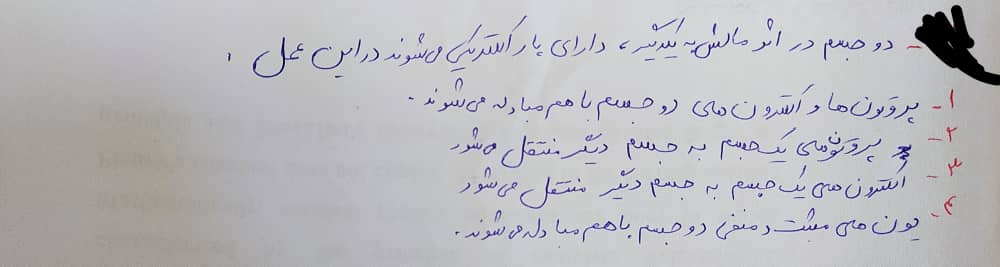 - دو جسم در اثر مالش به یکدیگر، دارای بار الکتریکی می‌شوند در این عمل،
۱- پروتون ها و الکترون های دو جسم با هم مبادله می‌شوند.
۲- پروتون‌های یک جسم به جسم دیگر منتقل می‌شود
۳- الکترون های یک جسم به جسم دیگر منتقل می‌شود
۴- یون های مثبت و منفی دو جسم با هم مبادله می‌شوند.